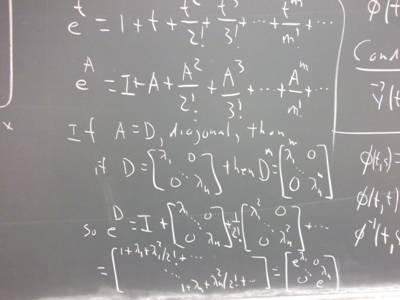 e^t = 1 + t + t²/2! + t³/3! + ⋯ + t^m/m! + ⋯
e^A = I + A + A²/2! + A³/3! + ⋯ + A^m/m! + ⋯
If A = D, diagonal, then
if D = [λ₁ 0; ⋱; 0 λₙ] then D^m = [λ₁^m 0; ⋱; 0 λₙ^m]
so e^D = I + [λ₁ 0; ⋱; 0 λₙ] + 1/2! [λ₁² 0; ⋱; 0 λₙ²] + ⋯
= [1 + λ₁ + λ₁²/2! + ⋯; ⋱; 1 + λₙ + λₙ²/2! + ⋯] = [e^λ₁ 0; ⋱; 0 e^λₙ]
x
ϕ(t
Cond
V(t
ϕ(t,s)
ϕ(t,t)
ϕ⁻¹(t,s